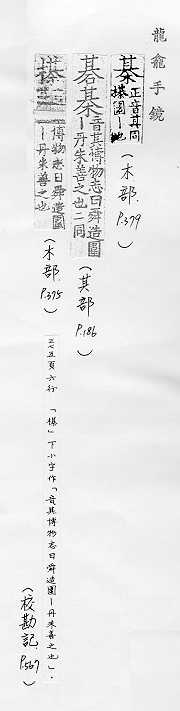 龍龕手鏡
棊 正音其同
圍｜
(木部 P.379)
碁棊 音其博物志曰舜造圍
｜丹朱善之也二同
(其部 P.186)
棋 博物志曰舜造圍
｜丹朱善之也
(木部 P.375)
三七五頁六行 「棋」下小字作「音其博物志曰舜造圍｜丹朱善之也」。
(校勘記 P.567)